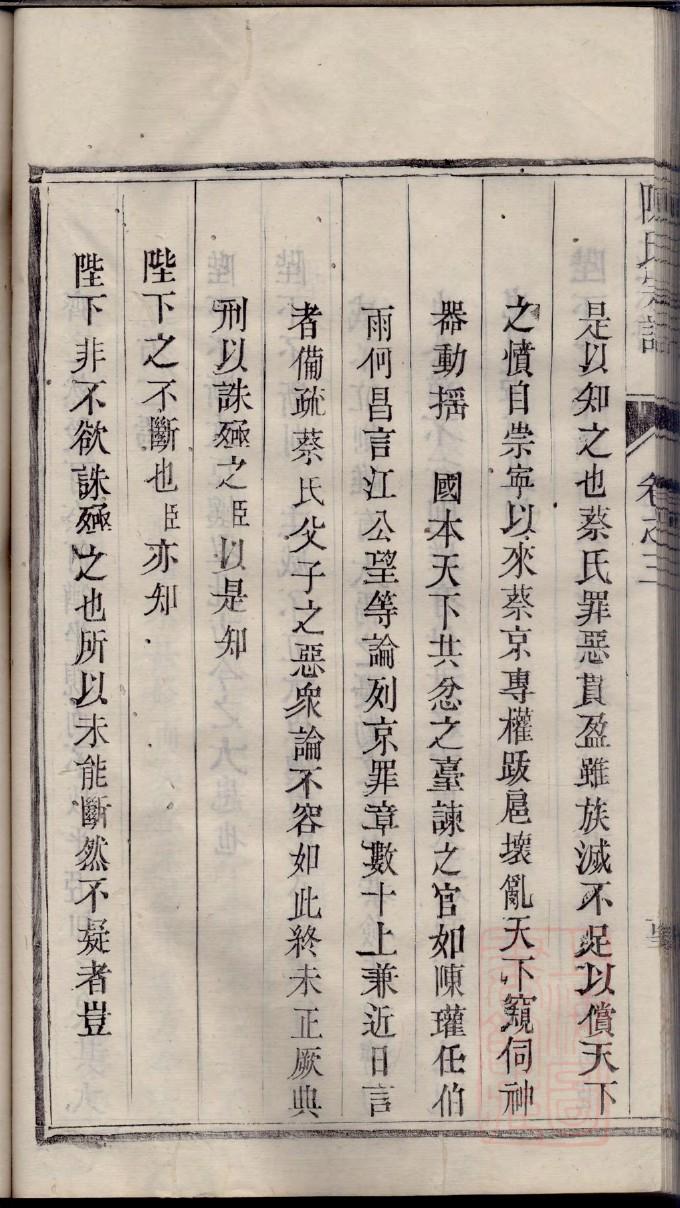 陳氏宗譜 卷之三
是以知之也蔡氏罪惡貫盈雖族滅不足以償天下
之憤自崇寧以來蔡京專權跋扈壞亂天下窺伺神
器動搖 國本天下共忿之臺諫之官如陳瓘任伯
雨何昌言江公望等論列京罪章數十上兼近日言
者備疏蔡氏父子之惡衆論不容如此終未正厥典
刑以誅殛之臣以是知
陛下之不斷也臣亦知
陛下非不欲誅殛之也所以未能斷然不疑者豈